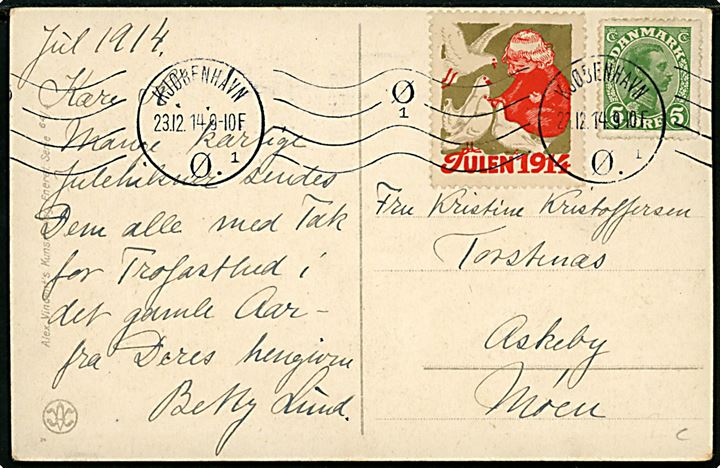 Jul 1914.
Kære
Mange kærlige
Julehilsner sendes
Dem alle med Tak
for Trofasthed i
det gamle Aar –
fra Deres hengivne
Betty Lund.
Alex. Vincent's Kunst Serie
KJØBENHAVN
23.12.14 9-10F
Ø. 1
Ø
1
JULEN 1914
DANMARK
5 ØRE 5
KJØBENHAVN
23.12.14 9-10F
Ø. 1
Fru Kristine Kristoffersen
Torstenas
Askeby
Møen
c